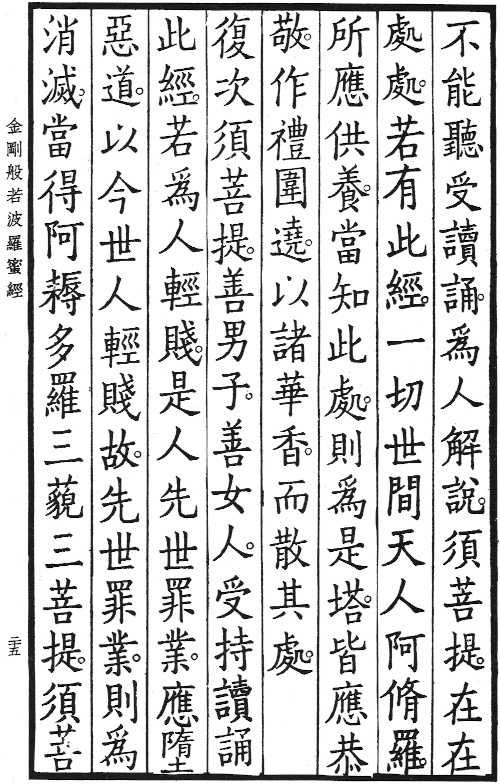 不能聽受讀誦。為人解說。須菩提。在在
處處。若有此經。一切世間天人阿脩羅。
所應供養。當知此處。則為是塔。皆應恭
敬。作禮圍遶。以諸華香。而散其處。
復次須菩提。善男子。善女人。受持讀誦
此經。若為人輕賤。是人先世罪業。應墮
惡道。以今世人輕賤故。先世罪業。則為
消滅。當得阿耨多羅三藐三菩提。須菩
金剛般若波羅蜜經
二五